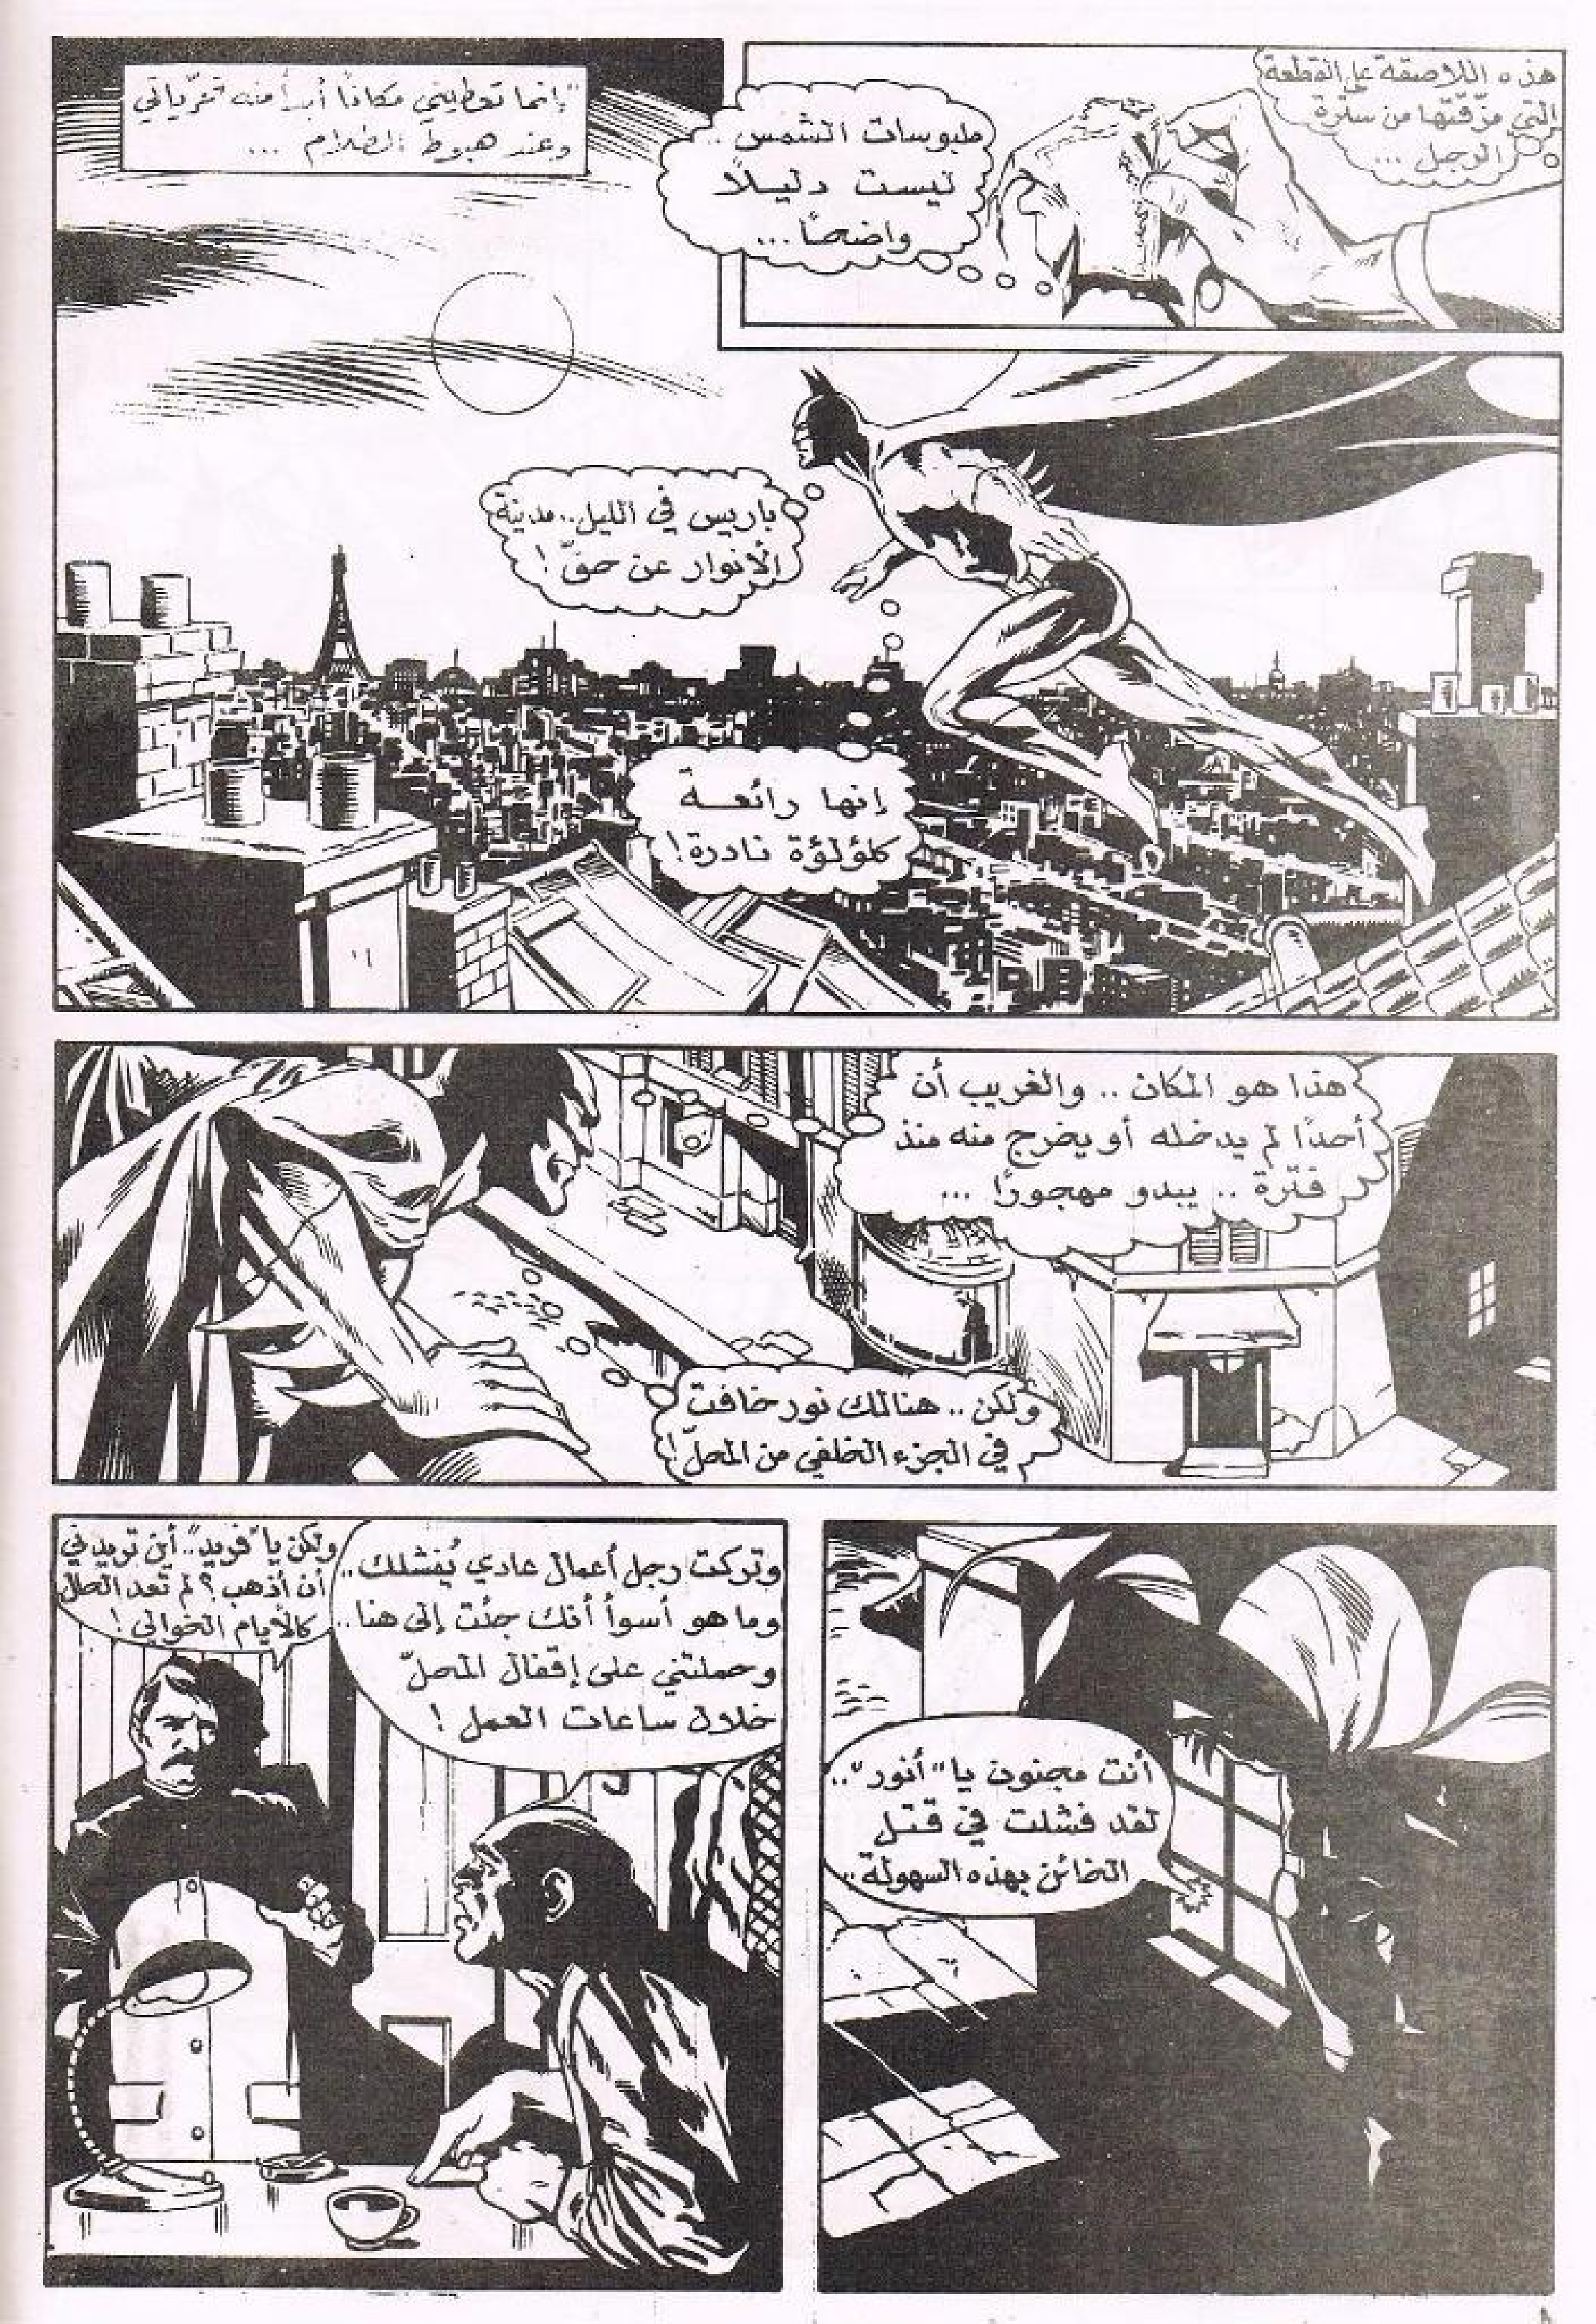 هذه اللاصقة على القطعة
التي مزّقتها من سترة
الرجل ...
ملبوسات الشمس ..
ليست دليلاً
واضحاً ...
"إنما تعطيني مكاناً أبدأ منه تحرّياتي
وعند هبوط الظلام ...
باريس في الليل.. مدينة
الأنوار عن حقّ !
إنها رائعة
كلؤلؤة نادرة !
هذا هو المكان .. والغريب أن
أحدًا لم يدخله أو يخرج منه منذ
فترة .. يبدو مهجورًا ...
ولكن .. هنالك نور خافت
في الجزء الخلفي من المحلّ !
أنت مجنون يا "أنور"..
لقد فشلت في قتل
الخائن بهذه السهولة ..
وتركت رجل أعمال عادي يُفشلك ..
وما هو أسوأ أنك جئت إلى هنا ..
وحملتني على إقفال المحلّ
خلال ساعات العمل !
ولكن يا "فريد".. أين تريدني
أن أذهب ؟ لم تعد الحال
كالأيام الخوالي !
٨